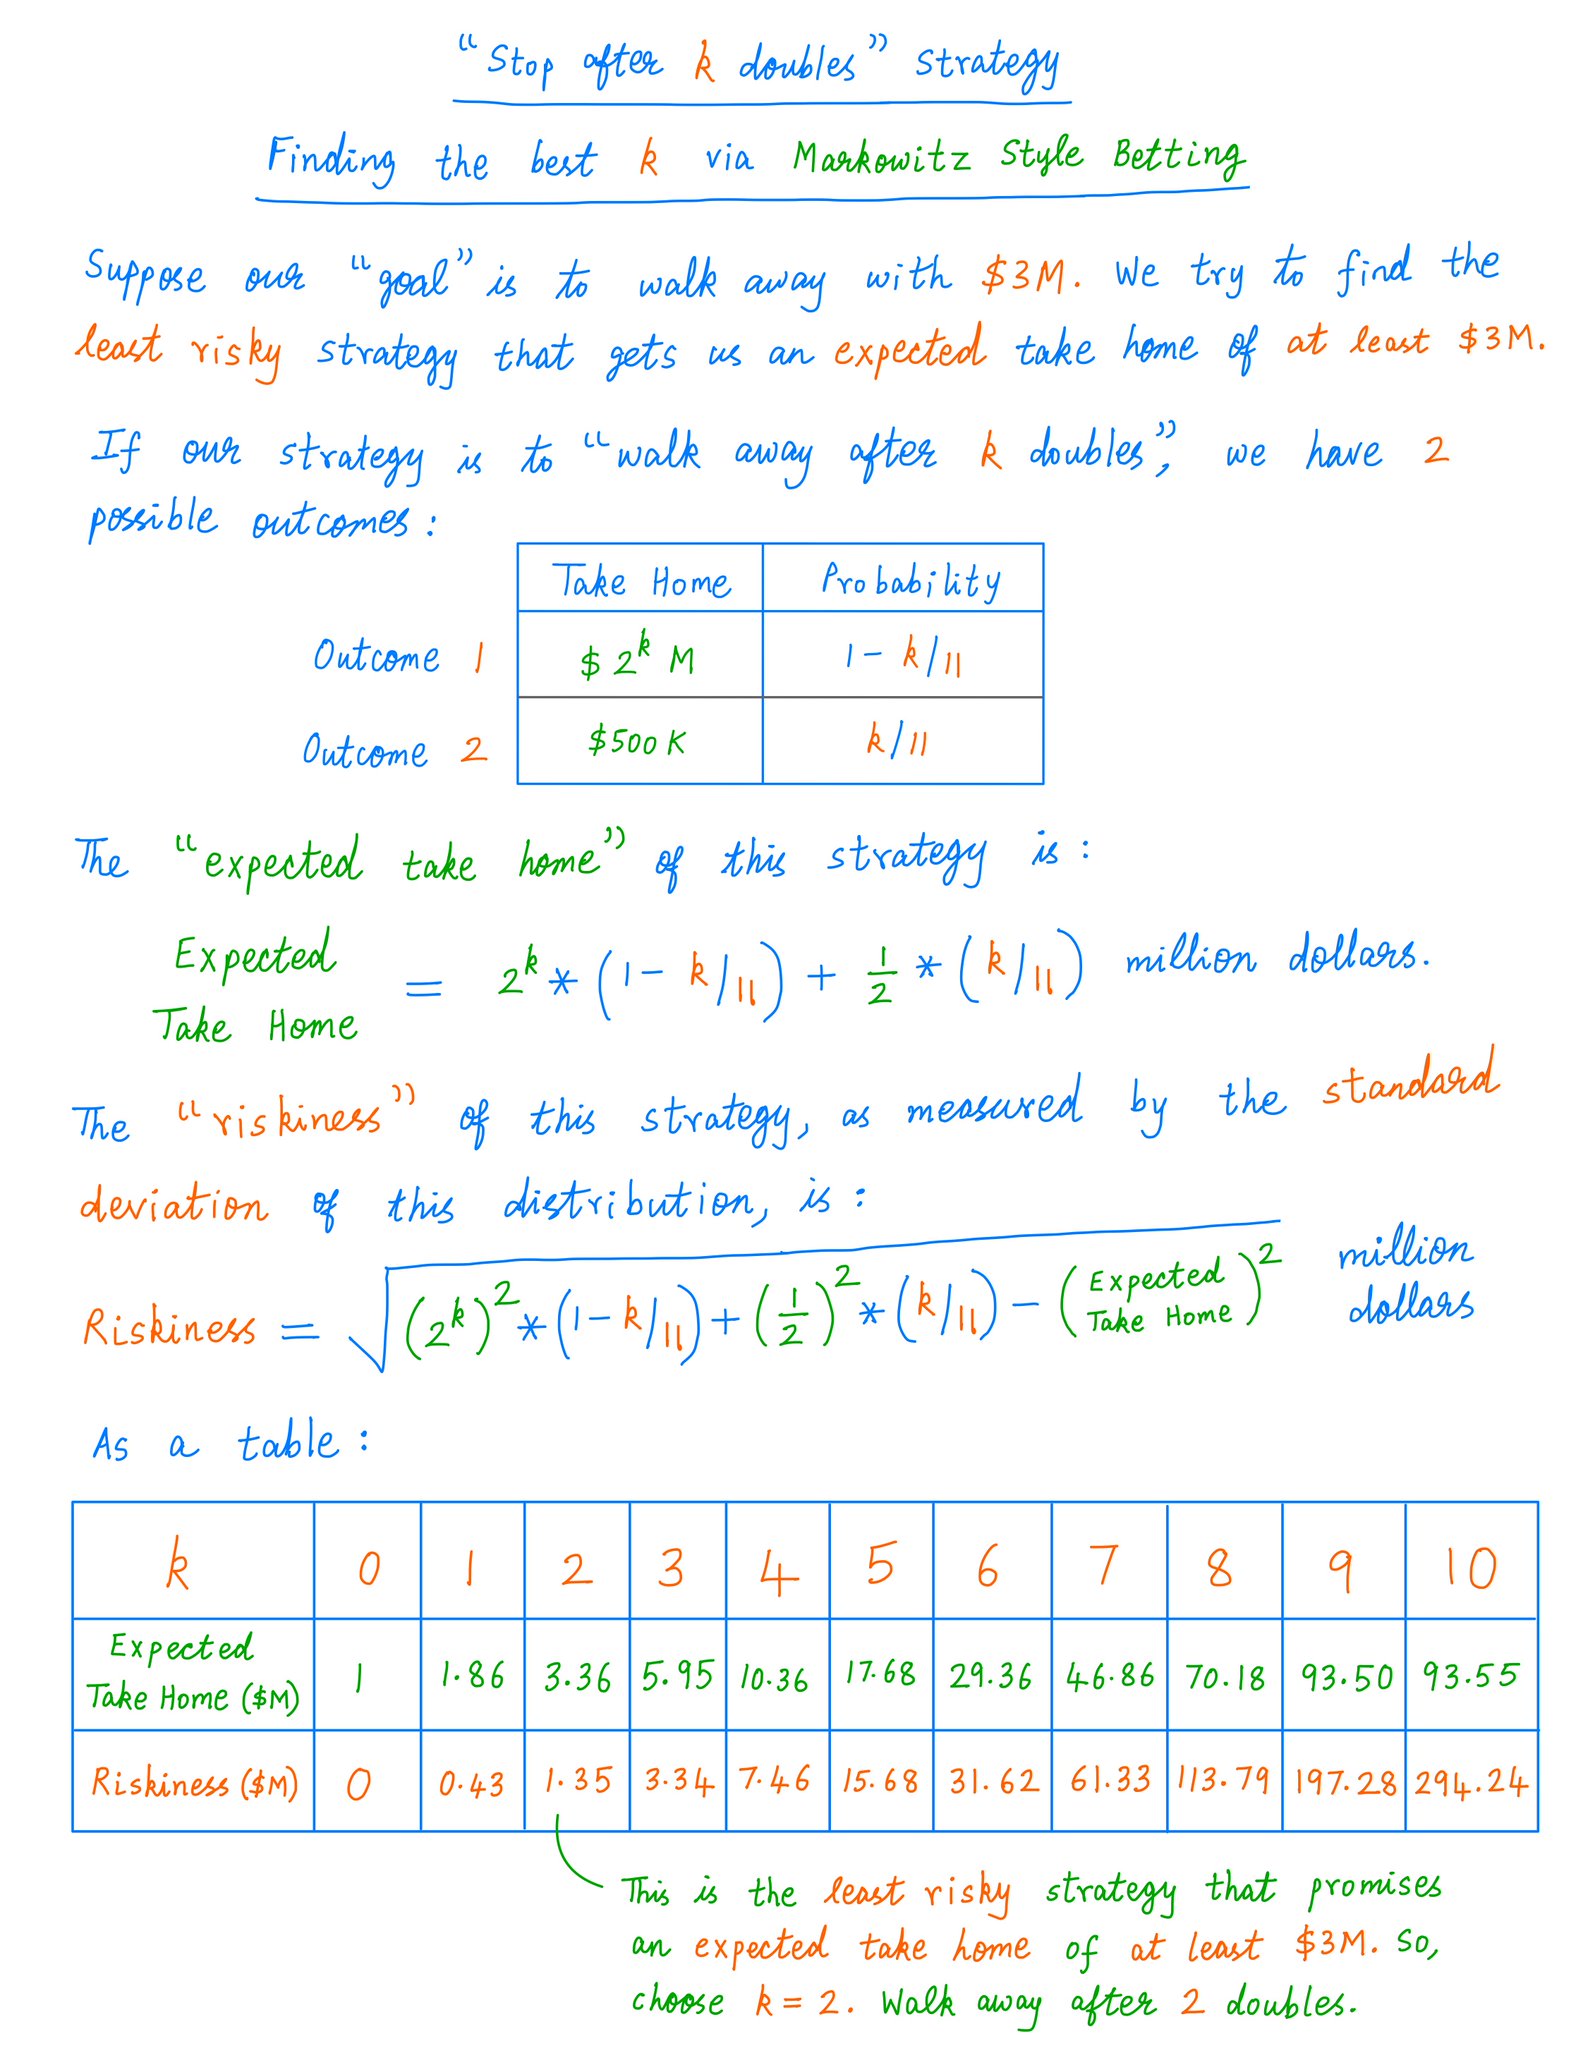 “Stop after k doubles” Strategy
Finding the best k via Markowitz Style Betting
Suppose our “goal” is to walk away with $3M. We try to find the
least risky strategy that gets us an expected take home of at least $3M.
If our strategy is to “walk away after k doubles”, we have 2
possible outcomes:
Take Home Probability
Outcome 1 $ 2^k M 1 - k/11
Outcome 2 $500K k/11
The “expected take home” of this strategy is:
Expected Take Home = 2^k * (1 - k/11) + 1/2 * (k/11) million dollars.
The “riskiness” of this strategy, as measured by the standard
deviation of this distribution, is:
Riskiness = √((2^k)^2 * (1 - k/11) + (1/2)^2 * (k/11) - (Expected Take Home)^2) million dollars
As a table:
k 0 1 2 3 4 5 6 7 8 9 10
Expected Take Home ($M) 1 1.86 3.36 5.95 10.36 17.68 29.36 46.86 70.18 93.50 93.55
Riskiness ($M) 0 0.43 1.35 3.34 7.46 15.68 31.62 61.33 113.79 197.28 294.24
This is the least risky strategy that promises
an expected take home of at least $3M. So,
choose k = 2. Walk away after 2 doubles.